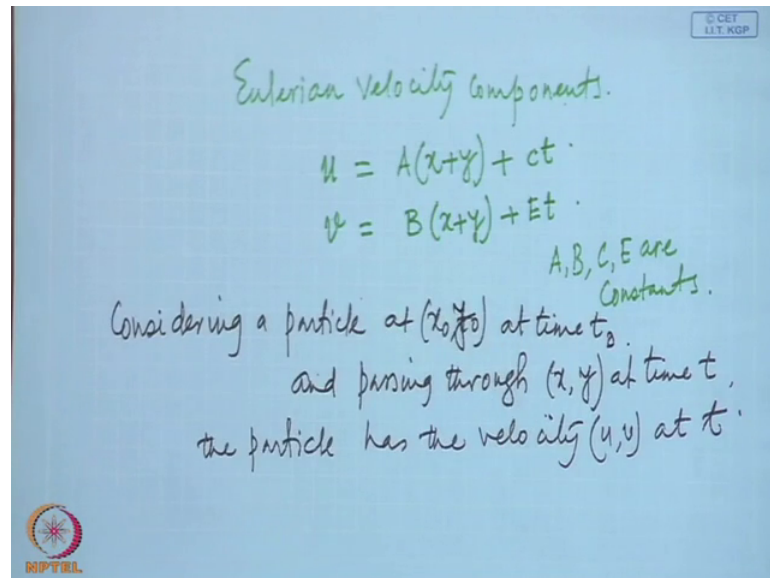 © CET
I.I.T. KGP
Eulerian velocity components.
u = A(x+y) + ct.
v = B(x+y) + Et.
A, B, C, E are
Constants.
Considering a particle at (x0, y0) at time t0.
and passing through (x, y) at time t,
the particle has the velocity (u, v) at t.
NPTEL